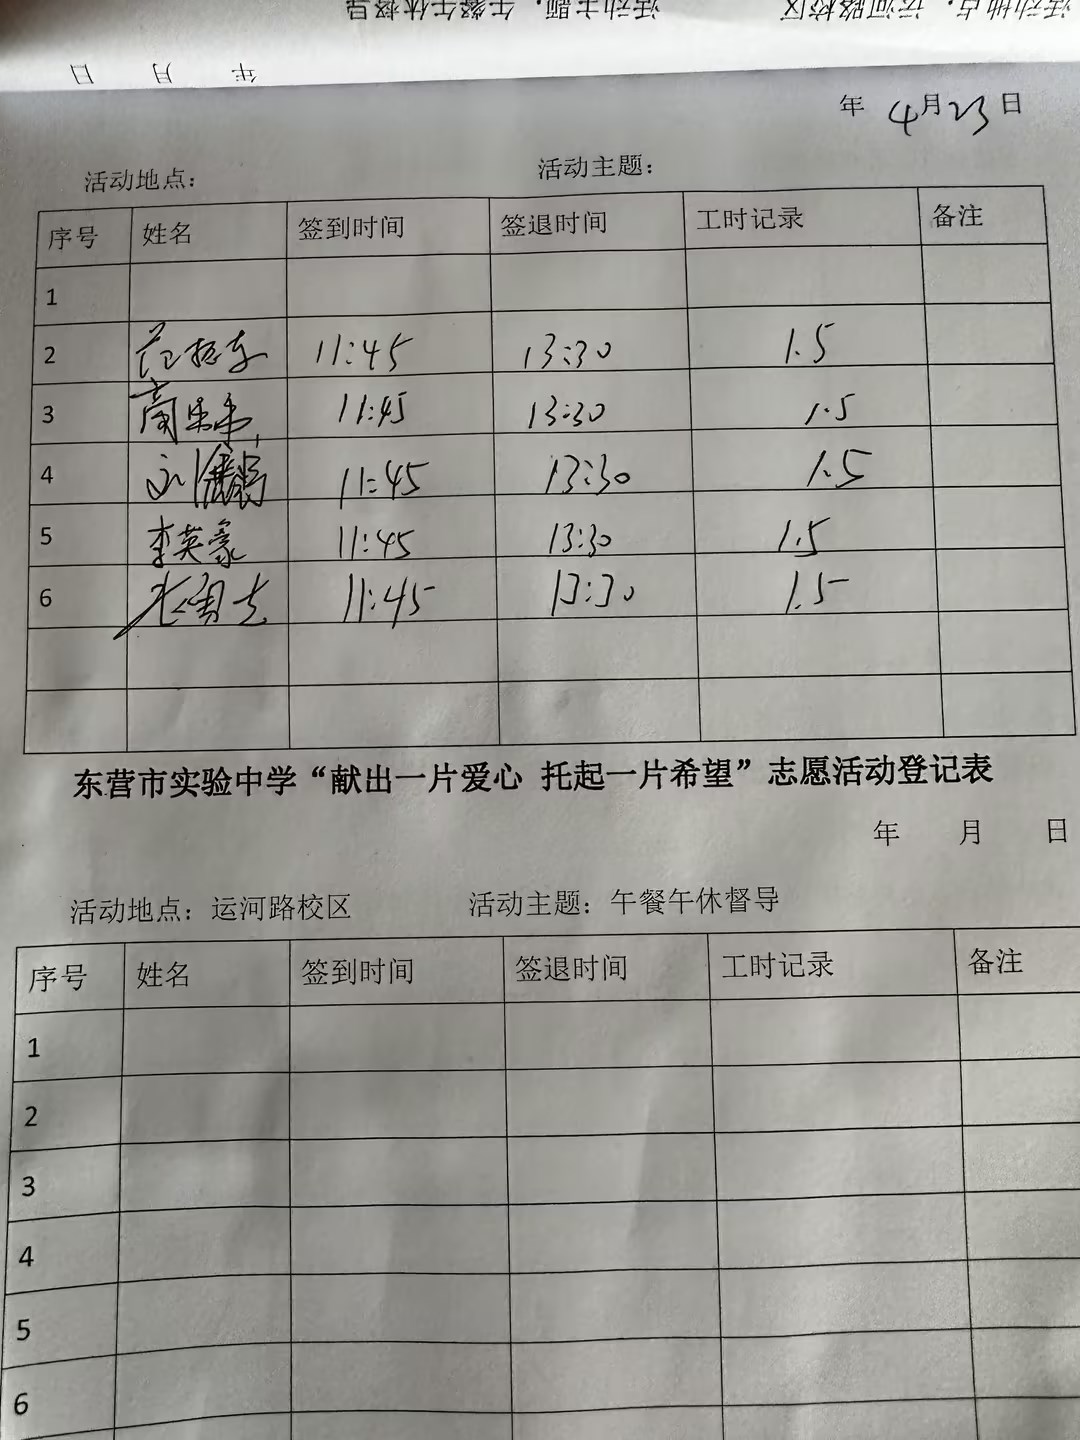 活动地点：运河路校区 活动主题：午餐午休督导
年 月 日
年 4月23日
活动地点： 活动主题：
序号 姓名 签到时间 签退时间 工时记录 备注
1
2 11:45 13:30 1.5
3 11:45 13:30 1.5
4 11:45 13:30 1.5
5 李英豪 11:45 13:30 1.5
6 11:45 13:30 1.5
东营市实验中学“献出一片爱心 托起一片希望”志愿活动登记表
年 月 日
活动地点：运河路校区 活动主题：午餐午休督导
序号 姓名 签到时间 签退时间 工时记录 备注
1
2
3
4
5
6